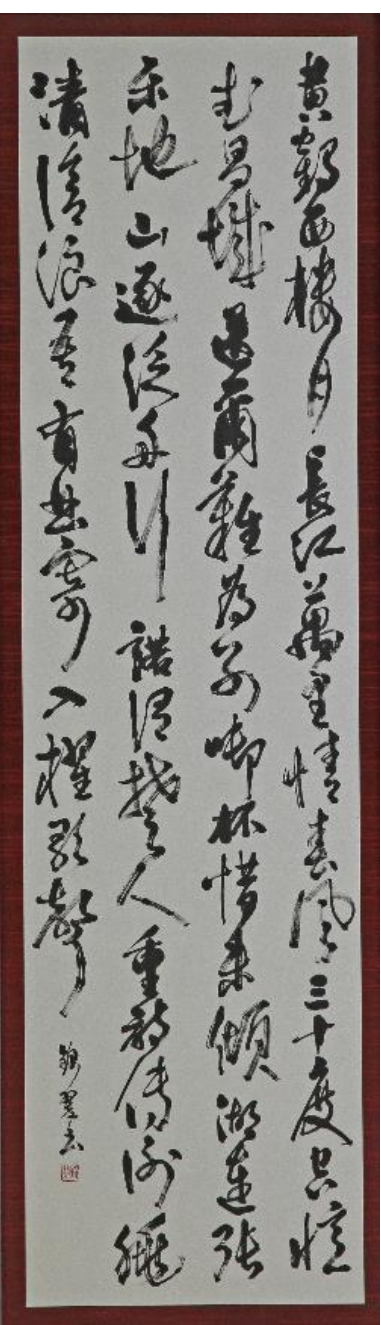 黃鶴西樓月長江萬里情春風三十度空憶
武昌城送爾難為別啣杯惜未傾湖連張
樂地山逐泛舟行諾謂楚人重詩傳謝朓
清滄浪吾有曲寄入櫂歌聲